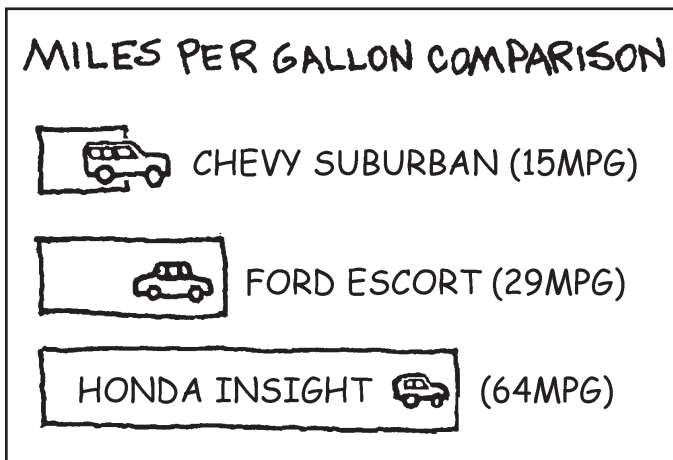 MILES PER GALLON COMPARISON
CHEVY SUBURBAN (15MPG)
FORD ESCORT (29MPG)
HONDA INSIGHT (64MPG)